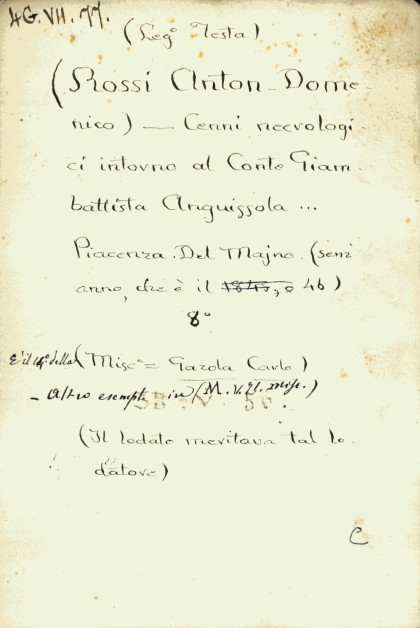 4G.VII.77.
(Leg.º Testa)
(Rossi Anton-Dome-
nico) — Cenni necrologi-
ci intorno al Conte Giam-
battista Anguissola ...
Piacenza. Del Majno. (senz'
anno, che è il 1845, o 46)
8º
È il 14º della (Misc.ª = Gazola Carlo)
- Altro esempl. in (M. V. El. misc.)
(Il lodato meritava tal lo-
datore)
C